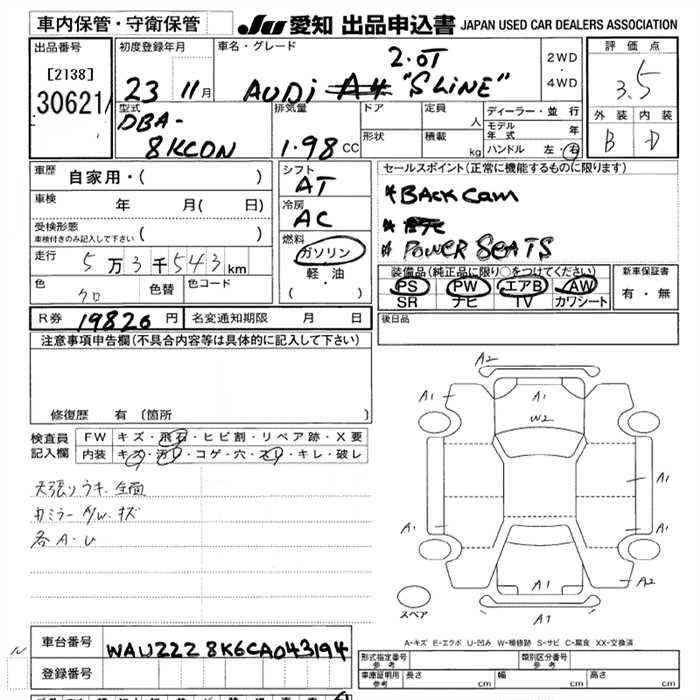 車内保管・守衛保管
JU 愛知 出品申込書 JAPAN USED CAR DEALERS ASSOCIATION
出品番号
[2138]
30621
初度登録年月
23 11月
車名・グレード
2.0T
AUDi A4 "S LiNE"
2WD
4WD
評価点
3.5
外装 内装
B D
型式
DBA-
8KCDN
排気量
1.98 CC
ドア
定員
人
形状
積載
kg
ディーラー・並行
モデル年式 年
ハンドル 左・右
車歴
自家用・( )
車検
年 月( 日)
受検形態
車検付きのみ記入して下さい ( )
走行
5万3千543km
色
クロ
色替
色コード
シフト
AT
冷房
AC
燃料
ガソリン
軽・油
( ・ )
セールスポイント(正常に機能するものに限ります)
* BACK Cam
* ETC
* POWER SEATS
装備品(純正品に限り○をつけてください)
PS PW エアB AW
SR ナビ TV カワシート
新車保証書
有・無
後日品
R券 19820 円
名変通知期限 月 日
注意事項申告欄(不具合内容等は具体的に記入して下さい)
修復歴 有 〔箇所 〕
検査員
記入欄
FW キズ・飛石・ヒビ割・リペア跡・X要
内装 キズ・汚レ・コゲ・穴・スレ・キレ・破レ
天張りウキ 全面
カミラー A/W キズ
各A-U
A2
A1
A1
W2
A1
A1
A1
A1
A2
A1
スペア
A-キズ E-エクボ U-凹み W-補修跡 S-サビ C-腐食 XX-交換済
車台番号
WAUZZZ8K6CA043194
登録番号
形式指定番号
参考
類別区分番号
参考
車庫証明用
参考
長さ cm
幅 cm
高さ cm